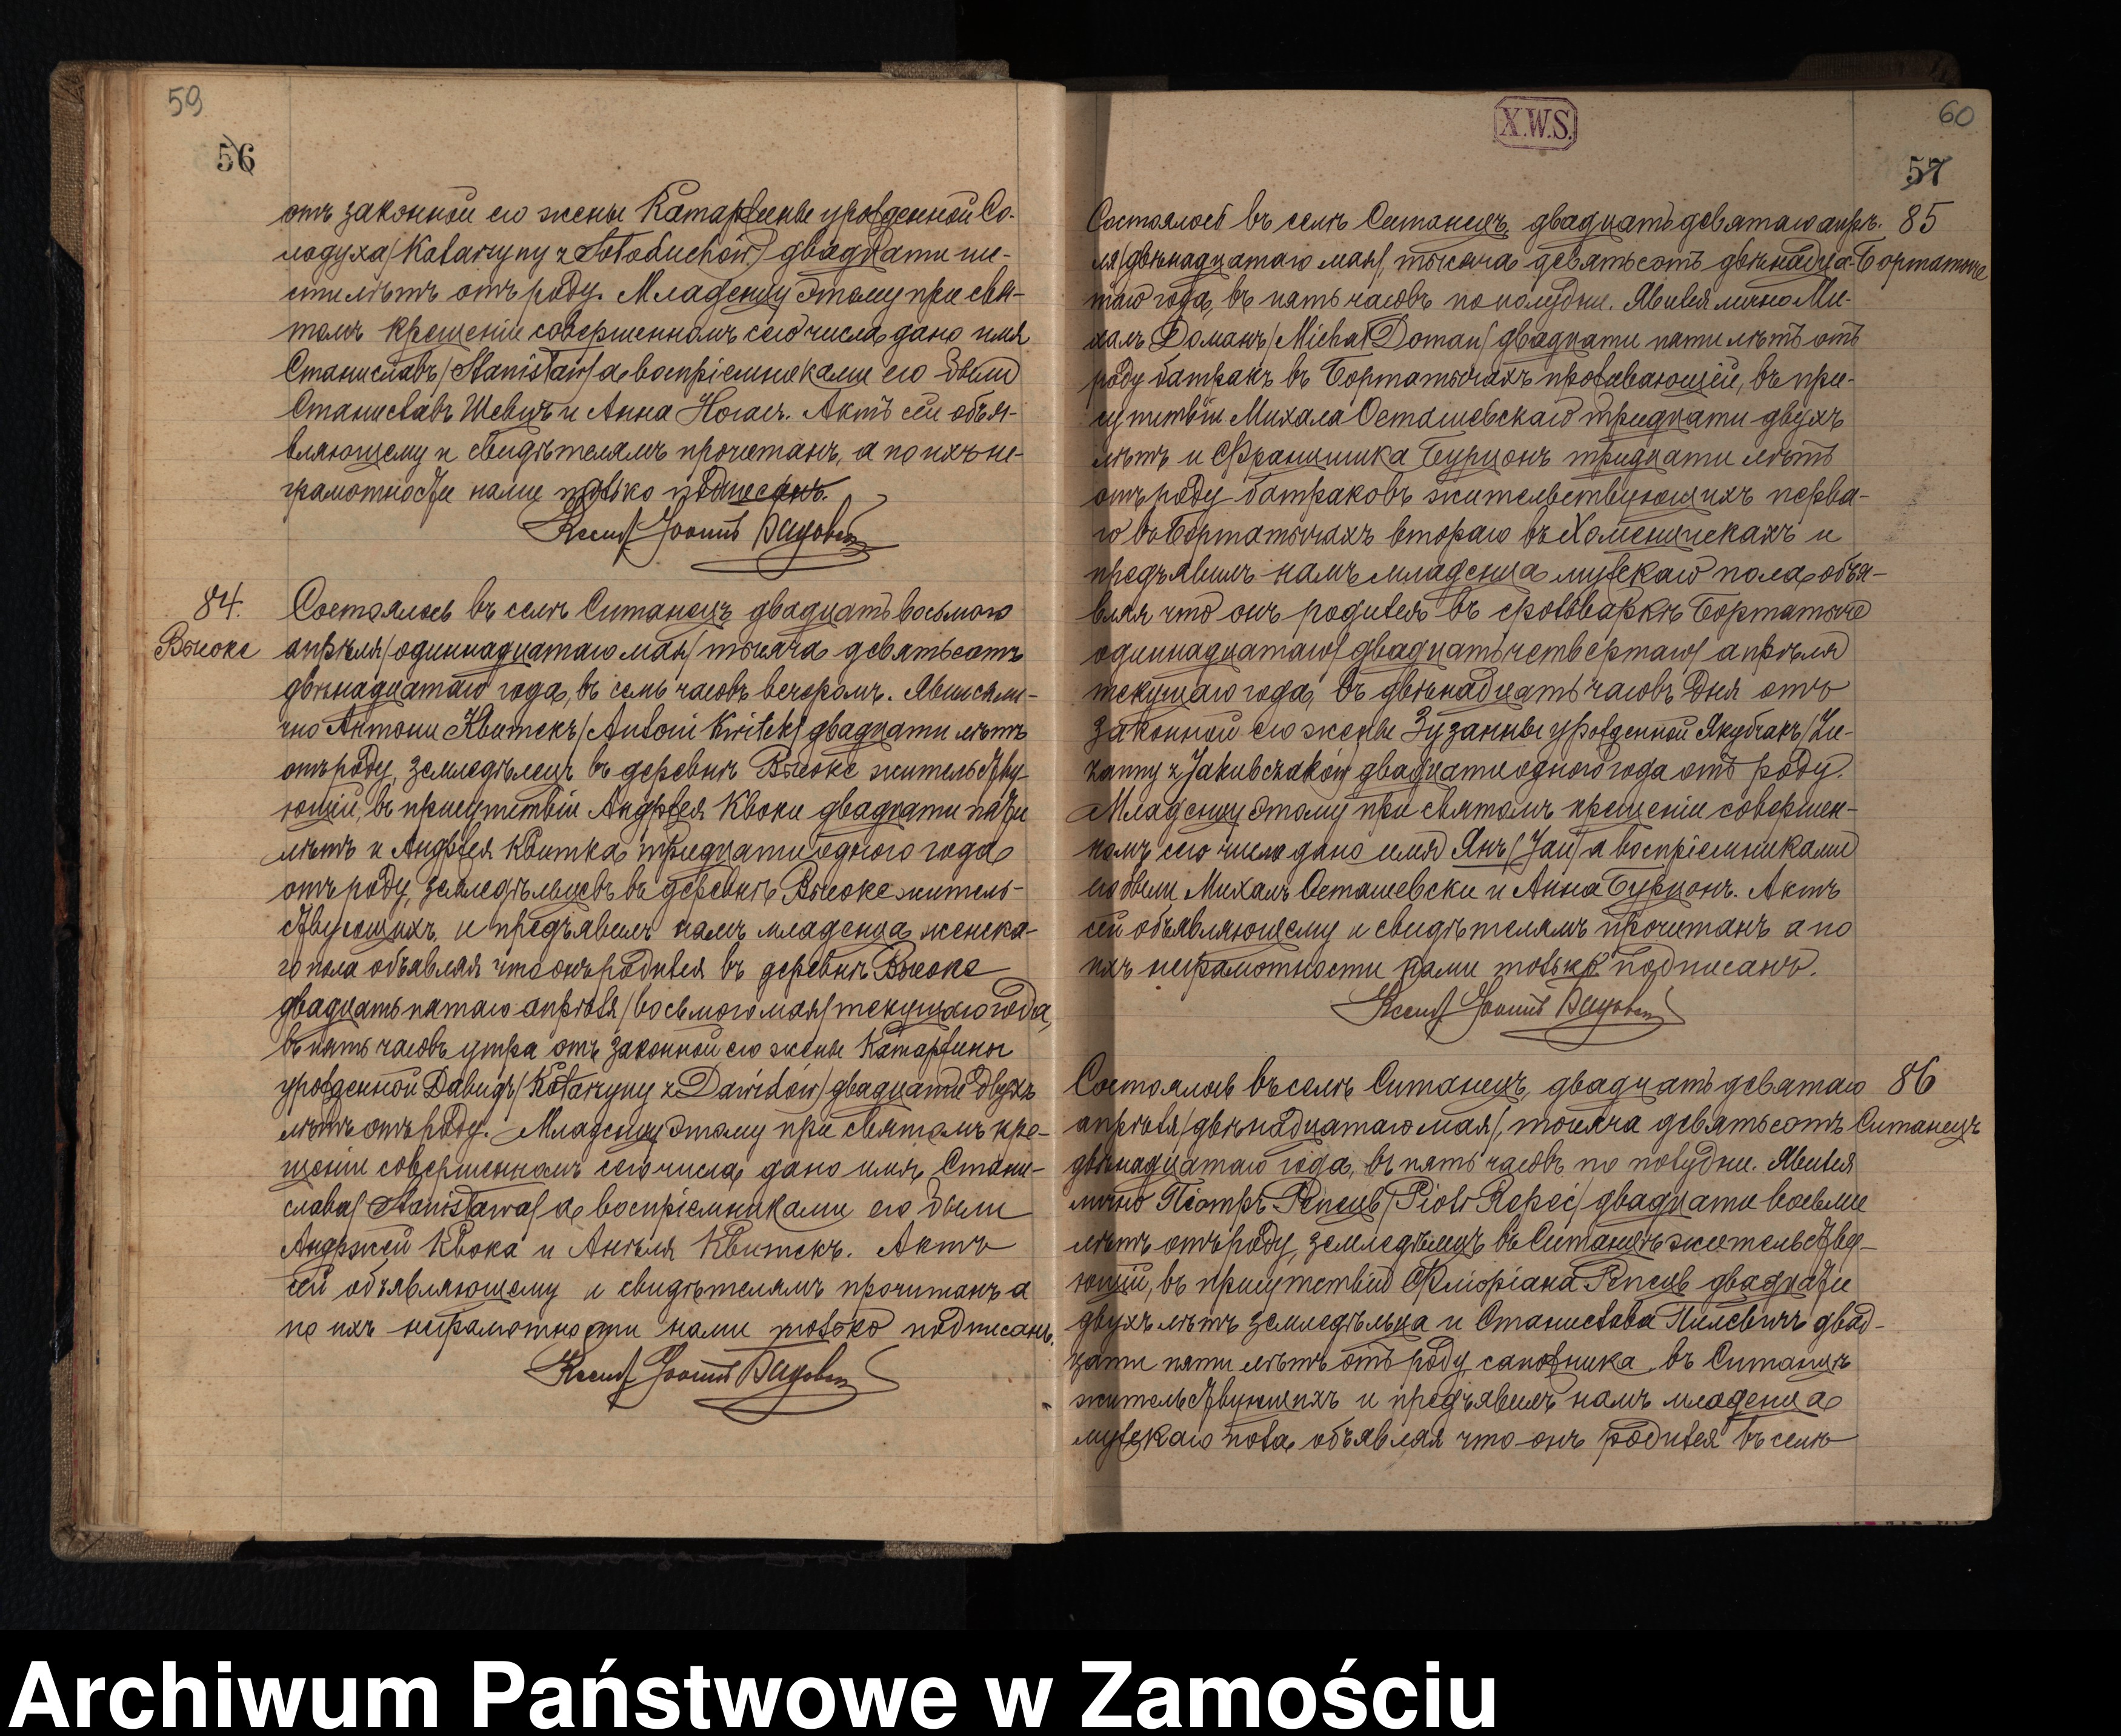 59
56
отъ законной его жены Катаржины урожденной Со-
лодуха /Katarzyny z Sołoduchów/ двадцати ше-
сти лѣтъ отъ роду. Младенцу этому при свя-
томъ крещеніи совершенномъ сего числа дано имя
Станиславъ /Stanisław/ а воспріемниками его были
Станиславъ Шевцъ и Анна Ногас. Актъ сей объя-
вляющему и свидѣтелямъ прочитанъ, а по ихъ не-
грамотности нами только подписанъ.
84.
Высоке
Состоялось въ селѣ Ситанецъ двадцать восьмого
апрѣля /одиннадцатаго мая/ тысяча девятьсотъ
двѣнадцатаго года, въ семь часовъ вечеромъ. Явился ли-
чно Антони Квитекъ /Antoni Kwitek/ двадцати лѣтъ
отъ роду, земледѣлецъ въ деревнѣ Высоке жительству-
ющій, въ присутствіи Андржея Квоки двадцати пяти
лѣтъ и Андржея Квитка тридцати одного года
отъ роду, земледѣльцевъ въ деревнѣ Высоке житель-
ствующихъ, и предъявилъ намъ младенца женска-
го пола объявляя что онъ родился въ деревнѣ Высоке
двадцать пятаго апрѣля /восьмого мая/ текущаго года,
въ пять часовъ утра отъ законной его жены Катаржины
урожденной Давидъ /Katarzyny z Dawidów/ двадцати двухъ
лѣтъ отъ роду. Младенцу этому при святомъ кре-
щеніи совершенномъ сего числа дано имя Стани-
слава /Stanisława/ а воспріемниками его были
Андржей Квока и Анѣля Квитекъ. Актъ
сей объявляющему и свидѣтелямъ прочитанъ а
по ихъ неграмотности нами только подписанъ.
X.W.S.
60
57
Состоялось въ селѣ Ситанецъ двадцать девятаго апрѣ-
85
ля /двѣнадцатаго мая/, тысяча девятьсотъ двѣнадца-
Бортатыче
таго года, въ пять часовъ по полудни. Явился лично Ми-
халъ Доманъ /Michał Doman/ двадцати пяти лѣтъ отъ
роду батракъ въ Бортатычахъ проживающій, въ при-
сутствіи Михала Осташевскаго тридцати двухъ
лѣтъ и Францишка Бурцонъ тридцати лѣтъ
отъ роду батраковъ жительствующихъ перва-
го въ Бортатычахъ втораго въ Хоменцискахъ и
предъявилъ намъ младенца мужскаго пола объя-
вляя что онъ родился въ фольваркѣ Бортатыче
одиннадцатаго/двадцать четвертаго/ апрѣля
текущаго года, въ двѣнадцать часовъ дня отъ
законной его жены Зузанны урожденной Якубчакъ /Zu-
zanny z Jakubczaków/ двадцати одного года отъ роду.
Младенцу этому при святомъ крещеніи совершен-
номъ сего числа дано имя Янъ /Jan/ а воспріемниками
его были Михалъ Осташевски и Анна Бурцонъ. Актъ
сей объявляющему и свидѣтелямъ прочитанъ а по
ихъ неграмотности нами только подписанъ.
Состоялось въ селѣ Ситанецъ, двадцать девятаго
86
апрѣля /двѣнадцатаго мая/, тысяча девятьсотъ
Ситанецъ
двѣнадцатаго года, въ пять часовъ по полудни. Явился
лично Піотръ Репець /Piotr Repeć/ двадцати восьми
лѣтъ отъ роду, земледѣлецъ въ Ситанцѣ жительству-
ющій, въ присутствіи Флоріана Репець двадцати
двухъ лѣтъ земледѣльца и Станислава Пилевичъ двад-
цати пяти лѣтъ отъ роду, сапожника въ Ситанцѣ
жительствующихъ и предъявилъ намъ младенца
мужскаго пола, объявляя что онъ родился въ селѣ
Archiwum Państwowe w Zamościu